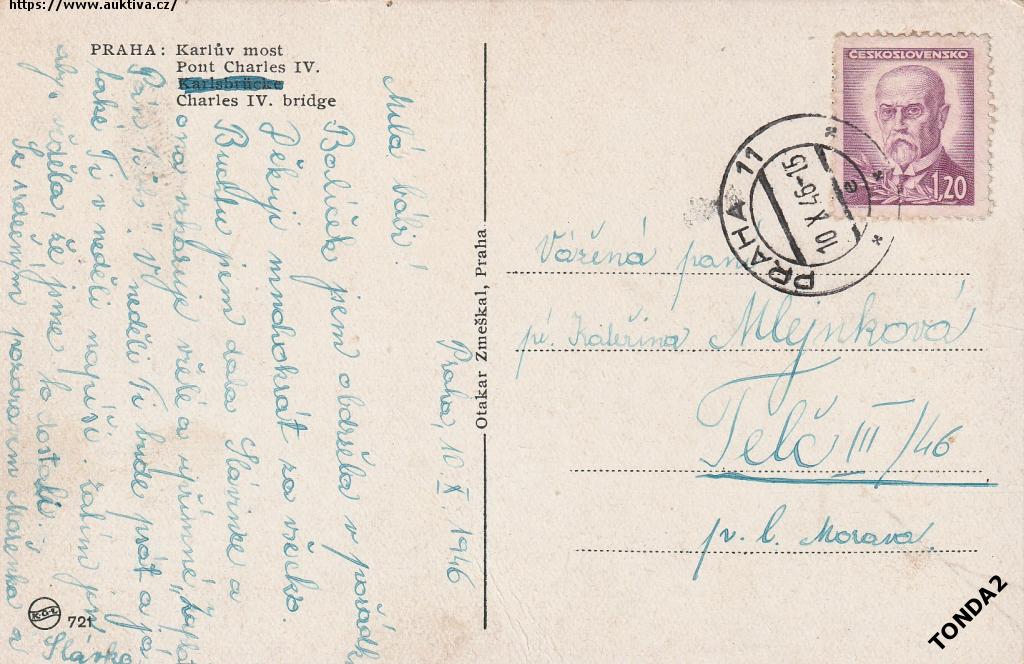 https://www.auktiva.cz/
PRAHA: Karlův most
Pont Charles IV.
Karlsbrücke
Charles IV. bridge
Praha, 10. X. 1946
Milá babi!
Balíček jsem obdržela v pořádku
Děkuji mnohokrát za všecko.
Buchtu jsem dala Slávince a
ona vzkazuje vřelé a upřímné „Zaplať
Pán Bůh". V neděli Ti bude psát a já
také Ti v neděli napíši. Zatím jen
aby věděla, že jsme to dostali.
Se srdečným pozdravem Mařenka a
Slávka
K.O.L.
721
Otakar Zmeškal, Praha.
ČESKOSLOVENSKO
1,20
PRAHA 11
10 X 46-15
e
Vážená paní
pí. Kateřina Mlejnková
Telč III/46
p. l. Morava.
TONDA2